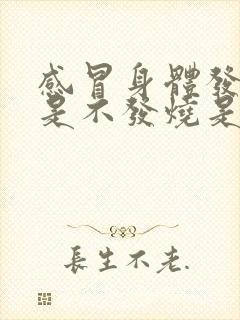 感冒身體發
是不發燒是
長生不老.